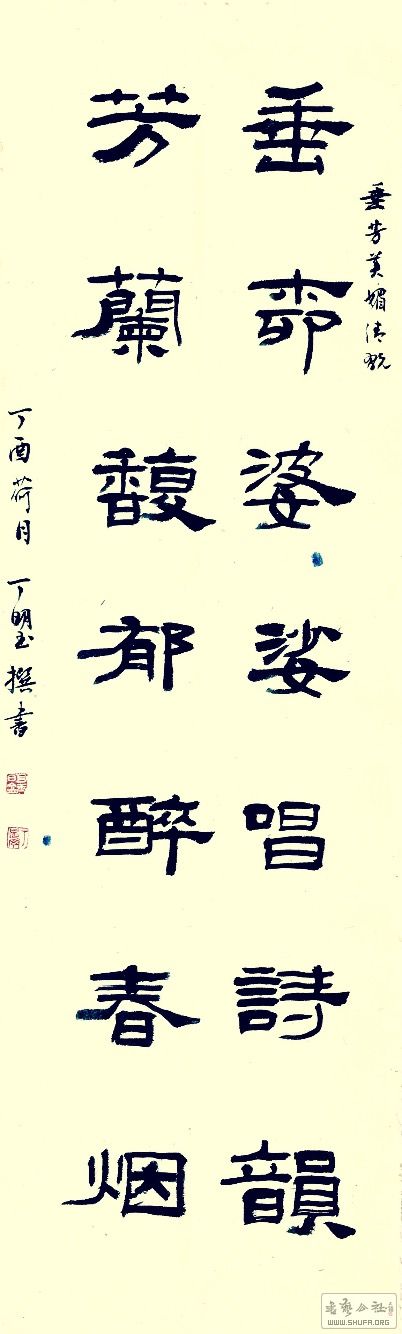 垂芳美媚清
垂柳婆娑唱詩韻
芳蘭馥郁醉春烟
丁酉荷月 丁明玉撰書
书艺公社
WWW.SHUFA.ORG